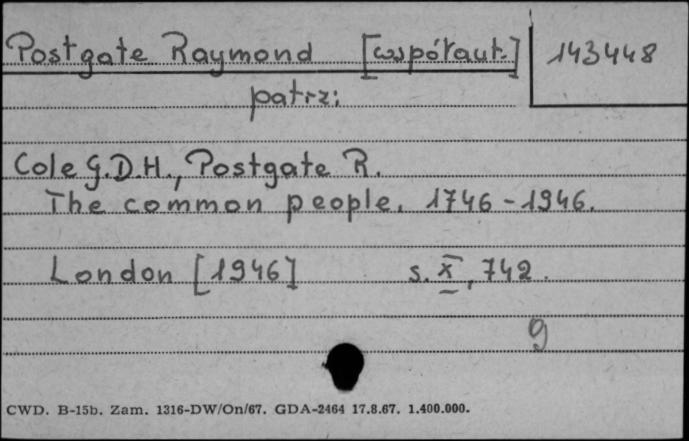 Postgate Raymond [współaut.] 143448
patrz:
Cole G.D.H., Postgate R.
The common people. 1746-1946.
London [1946] s. X, 742.
9
CWD. B-15b. Zam. 1316-DW/On/67. GDA-2464 17.8.67. 1.400.000.